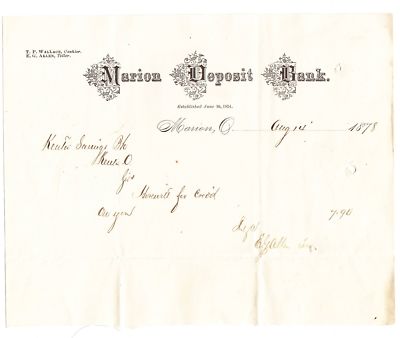 T. P. WALLACE, Cashier.
E. G. ALLEN, Teller.
Marion Deposit Bank.
Established June 16, 1854.
Marion, O. Aug 14 1878
Kenton Savings Bk
Kenton O
Gents
Herewith for Credit
on you 7.90